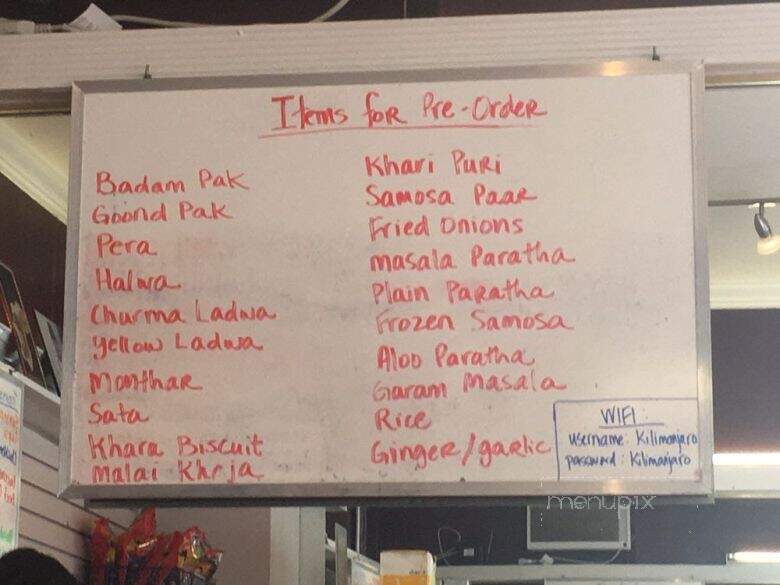 Items for Pre-Order
Badam Pak
Goond Pak
Pera
Halwa
Churma Ladwa
Yellow Ladwa
Monthar
Sata
Khara Biscuit
Malai Khaja
Khari Puri
Samosa Paar
Fried Onions
Masala Paratha
Plain Paratha
Frozen Samosa
Aloo Paratha
Garam Masala
Rice
Ginger/garlic
WIFI:
username: Kilimanjaro
password: Kilimanjaro
menupix